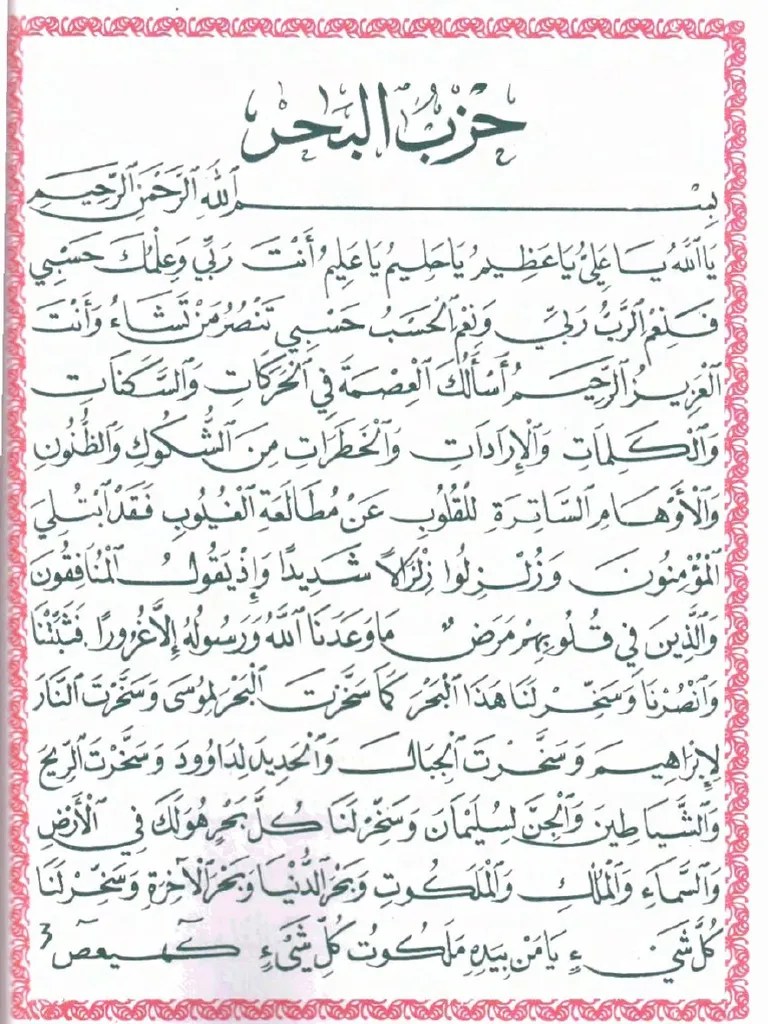 حِزْبُ الْبَحْرِ
بِسْمِ اللهِ الرَّحْمَنِ الرَّحِيمِ
يَا اللهُ يَا عَلِيُّ يَا عَظِيمُ يَا حَلِيمُ يَا عَلِيمُ أَنْتَ رَبِّي وَعِلْمُكَ حَسْبِي
فَنِعْمَ الرَّبُّ رَبِّي وَنِعْمَ الْحَسْبُ حَسْبِي تَنْصُرُ مَنْ تَشَاءُ وَأَنْتَ
الْعَزِيزُ الرَّحِيمُ أَسْأَلُكَ الْعِصْمَةَ فِي الْحَرَكَاتِ وَالسَّكَنَاتِ
وَالْكَلِمَاتِ وَالْإِرَادَاتِ وَالْخَطَرَاتِ مِنَ الشُّكُوكِ وَالظُّنُونِ
وَالْأَوْهَامِ السَّاتِرَةِ لِلْقُلُوبِ عَنْ مُطَالَعَةِ الْغُيُوبِ فَقَدْ ابْتُلِيَ
الْمُؤْمِنُونَ وَزُلْزِلُوا زِلْزَالًا شَدِيدًا وَإِذْ يَقُولُ الْمُنَافِقُونَ
وَالَّذِينَ فِي قُلُوبِهِمْ مَرَضٌ مَا وَعَدَنَا اللهُ وَرَسُولُهُ إِلَّا غُرُورًا. فَثَبِّتْنَا
وَانْصُرْنَا وَسَخِّرْ لَنَا هَذَا الْبَحْرَ كَمَا سَخَّرْتَ الْبَحْرَ لِمُوسَى وَسَخَّرْتَ النَّارَ
لِإِبْرَاهِيمَ وَسَخَّرْتَ الْجِبَالَ وَالْحَدِيدَ لِدَاوُودَ وَسَخَّرْتَ الرِّيحَ
وَالشَّيَاطِينَ وَالْجِنَّ لِسُلَيْمَانَ وَسَخِّرْ لَنَا كُلَّ بَحْرٍ هُوَ لَكَ فِي الْأَرْضِ
وَالسَّمَاءِ وَالْمُلْكِ وَالْمَلَكُوتِ وَبَحْرَ الدُّنْيَا وَبَحْرَ الْآخِرَةِ وَسَخِّرْ لَنَا
كُلَّ شَيْءٍ يَا مَنْ بِيَدِهِ مَلَكُوتُ كُلِّ شَيْءٍ كهيعص 3